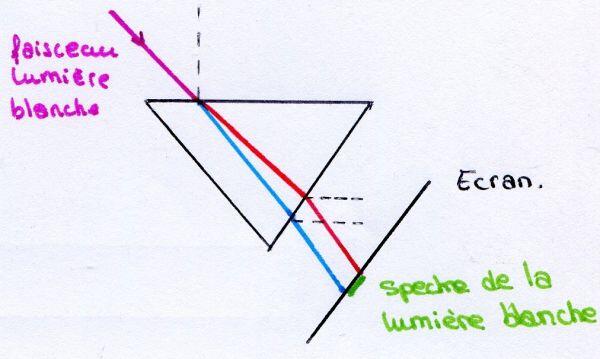 faisceau
lumière
blanche
Ecran.
spectre de la
lumière blanche